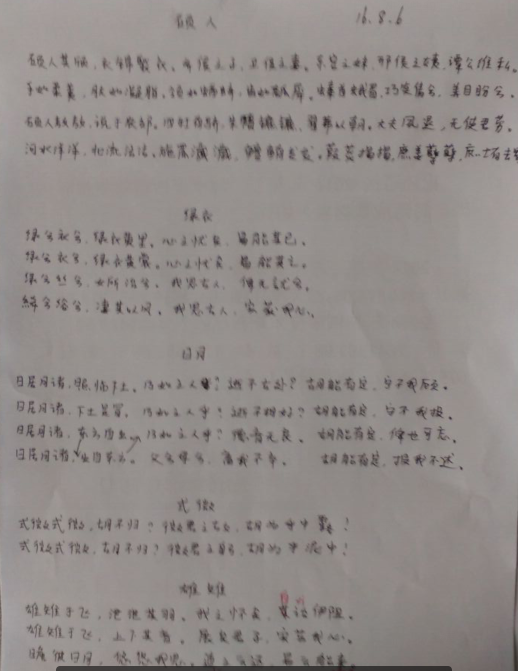 硕人 16.8.6
硕人其颀，衣锦褧衣。齐侯之子，卫侯之妻。东宫之妹，邢侯之姨，谭公维私。
手如柔荑，肤如凝脂，领如蝤蛴，齿如瓠犀。螓首蛾眉，巧笑倩兮，美目盼兮。
硕人敖敖，说于农郊。四牡有骄，朱幩镳镳，翟茀以朝。大夫夙退，无使君劳。
河水洋洋，北流活活。施罛濊濊，鳣鲔发发，葭菼揭揭，庶姜孽孽，庶士有朅
绿衣
绿兮衣兮，绿衣黄里。心之忧矣，曷维其已。
绿兮衣兮，绿衣黄裳。心之忧矣，曷维其亡。
绿兮丝兮，女所治兮。我思古人，俾无訧兮。
絺兮绤兮，凄其以风。我思古人，实获我心。
日月
日居月诸，照临下土。乃如之人兮？逝不古处？胡能有定，宁不我顾。
日居月诸，下土是冒。乃如之人兮？逝不相好？胡能有定，宁不我报。
日居月诸，东方自出。乃如之人兮？德音无良。胡能有定，俾也可忘。
日居月诸，东方。父兮母兮，畜我不卒。胡能有定，报我不述。
式微
式微式微，胡不归？微君之故，胡为乎中露？
式微式微，胡不归？微君之躬，胡为乎泥中？
雄雉
雄雉于飞，泄泄其羽。我之怀矣，自诒伊阻。
雄雉于飞，上下其音。展矣君子，实劳我心。
瞻彼日月，悠悠我思。道之云远，曷云能来。